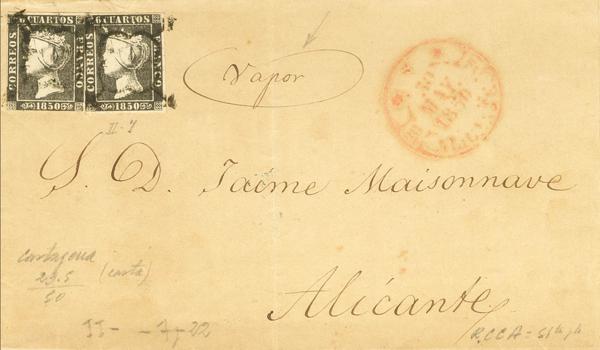 6 CUARTOS 6 CUARTOS
CORREOS FRANCO CORREOS FRANCO
1850 1850
Vapor
30
MAY.
1850
II-I
S. D. Jaime Maisonnave
Cartagena
29.5 (carta)
50
Alicante